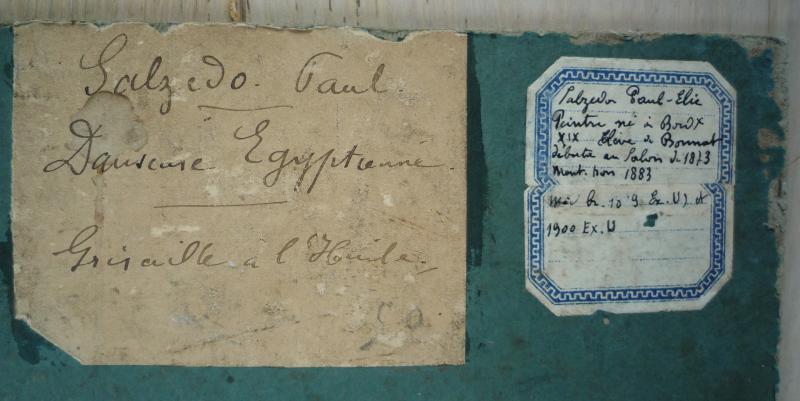 Salzedo. Paul.
Danseuse Egyptienne.
Grisaille à l'Huile.
50
Salzedo Paul-Elie
Peintre né à Bordx
XIX Elève de Bonnat
débute au Salon d. 1873
Ment. hon 1883
1900 Ex. U